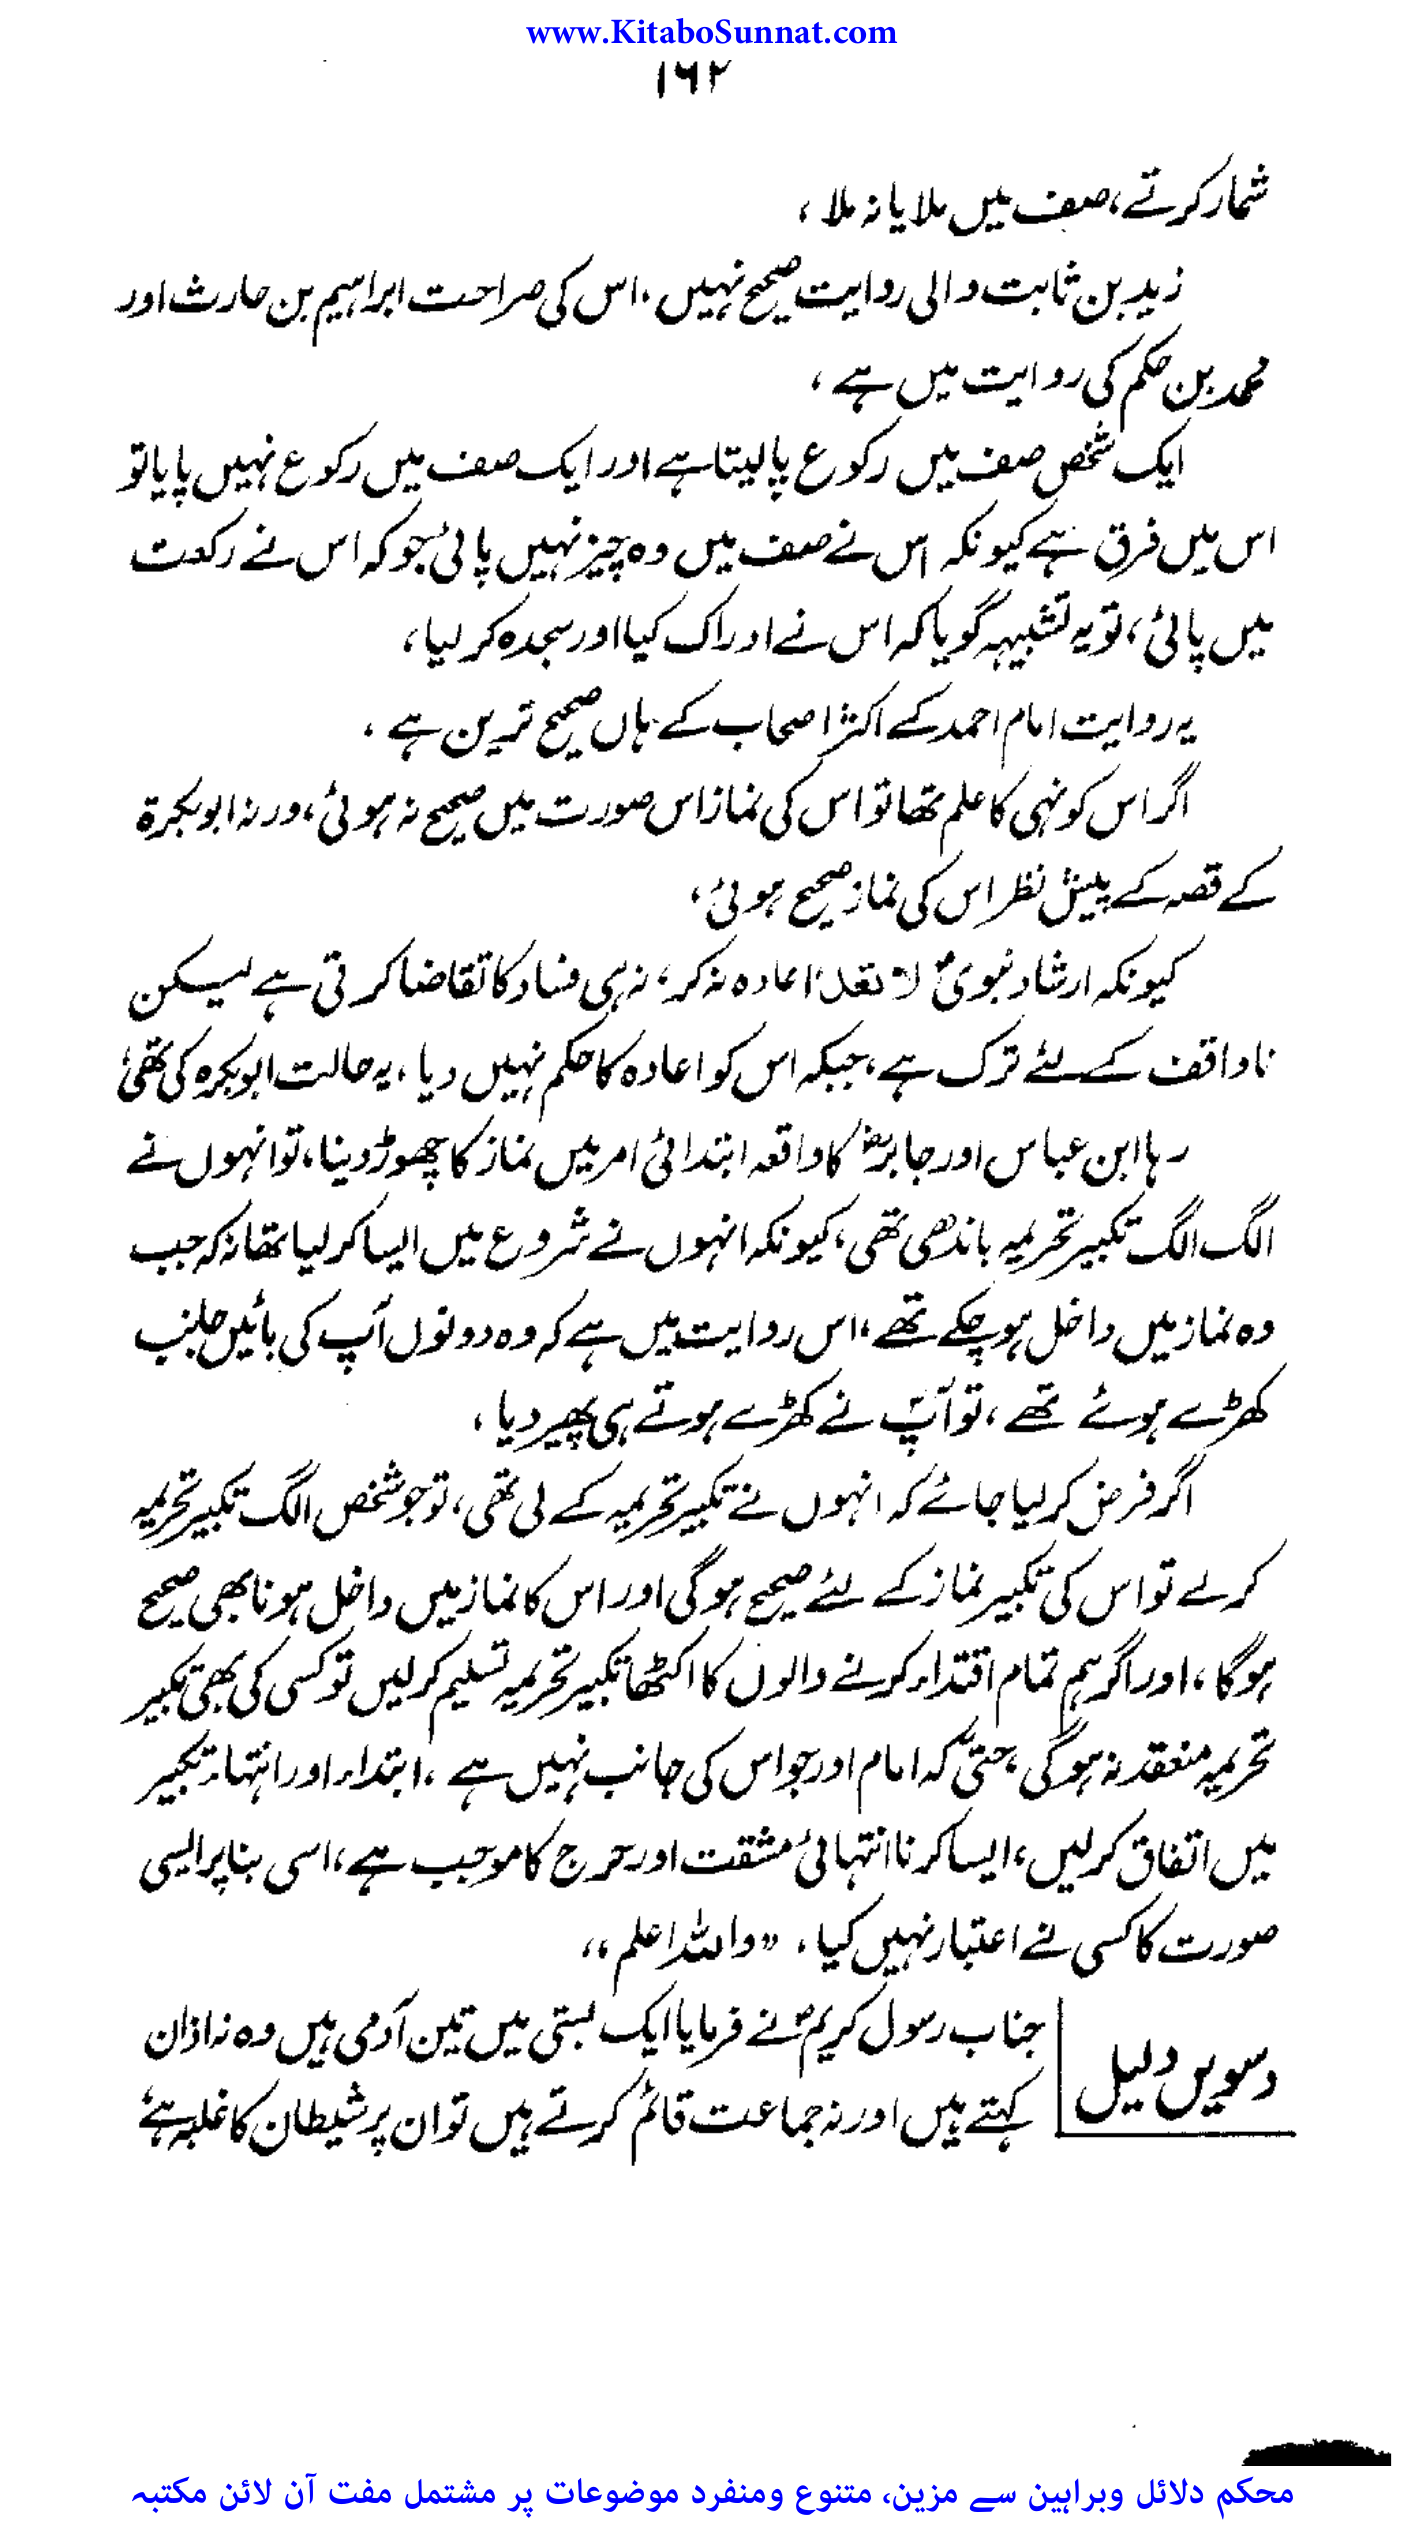 www.KitaboSunnat.com
۱۶۲
شمار کرتے، صف میں ملا یا نہ ملا،
زید بن ثابت والی روایت صحیح نہیں، اس کی صراحت ابراہیم بن حارث اور
محمد بن حکم کی روایت میں ہے،
ایک شخص صف میں رکوع پا لیتا ہے اور ایک صف میں رکوع نہیں پایا تو
اس میں فرق ہے کیونکہ اس نے صف میں وہ چیز نہیں پائی جو کہ اس نے رکعت
میں پائی، تو یہ تشبیہہ گویا کہ اس نے ادراک کیا اور سجدہ کر لیا،
یہ روایت امام احمد کے اکثر اصحاب کے ہاں صحیح ترین ہے،
اگر اس کو نہی کا علم تھا تو اس کی نماز اس صورت میں صحیح نہ ہوئی، ورنہ ابوبکرۃ
کے قصہ کے پیش نظر اس کی نماز صحیح ہوئی،
کیونکہ ارشاد نبویؐ لا تعد، اعادہ نہ کر، نہی فساد کا تقاضا کرتی ہے لیکن
ناواقف کے لئے ترک ہے، جبکہ اس کو اعادہ کا حکم نہیں دیا، یہ حالت ابوبکرہ کی تھی
رہا ابن عباس اور جابرؓ کا واقعہ ابتدائی امر میں نماز کا چھوڑ دینا، تو انہوں نے
الگ الگ تکبیر تحریمہ باندھی تھی، کیونکہ انہوں نے شروع میں ایسا کر لیا تھا نہ کہ جب
وہ نماز میں داخل ہو چکے تھے، اس روایت میں ہے کہ وہ دونوں آپ کی بائیں جانب
کھڑے ہوئے تھے، تو آپؐ نے کھڑے ہوتے ہی پھیر دیا،
اگر فرض کر لیا جائے کہ انہوں نے تکبیر تحریمہ کہ لی تھی، تو جو شخص الگ تکبیر تحریمہ
کرے تو اس کی تکبیر نماز کے لئے صحیح ہو گی اور اس کا نماز میں داخل ہونا بھی صحیح
ہوگا، اور اگر ہم تمام اقتداء کرنے والوں کا اکٹھا تکبیر تحریمہ تسلیم کر لیں تو کسی کی بھی تکبیر
تحریمہ منعقد نہ ہو گی، حتیٰ کہ امام اور جو اس کی جانب نہیں ہے، ابتداء اور انتہاء تکبیر
میں اتفاق کر لیں، ایسا کرنا انتہائی مشقت اور حرج کا موجب ہے، اسی بنا پر ایسی
صورت کا کسی نے اعتبار نہیں کیا، "واللہ اعلم"
دسویں دلیل
جناب رسول کریمؐ نے فرمایا ایک بستی میں تین آدمی ہیں وہ نہ اذان
کہتے ہیں اور نہ جماعت قائم کرتے ہیں تو ان پر شیطان کا غلبہ ہے
محکم دلائل وبراہین سے مزین، متنوع ومنفرد موضوعات پر مشتمل مفت آن لائن مکتبہ